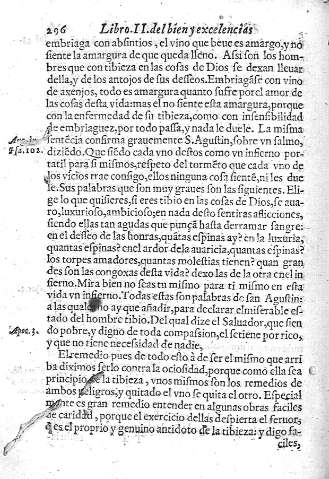 296 Libro.II.del bien y excelencias
embriaga con absintios, el vino que beue es amargo, y no
siente la amargura de que queda lleno. Assi son los hom-
bres que con tibieza en las cosas de Dios se dexan lleuar
della, y de los antojos de sus desseos. Embriagãse con vino
de axenjos, todo es amargura quanto sufre por el amor de
las cosas desta vida: mas el no siente esta amargura, porque
con la enfermedad de su tibieza, como con insensibilidad
de embriaguez, por todo passa, y nada le duele. La misma
Aug. in sentẽcia confirma grauemente S. Agustin, sobre vn salmo,
Psa. 102. diziẽdo. Que siẽdo cada vno destos como vn infierno por-
tatil para si mismos, respeto del tormẽto que cada vno de
los vicios trae consigo, ellos ninguna cosa siente, ni les due
le. Sus palabras que son muy graues son las siguientes. Eli-
ge lo que quisieres, si eres tibio en las cosas de Dios, se aua-
ro, luxurioso, ambicioso, en nada desto sentiras afficciones,
siendo ellas tan agudas que punçã hasta derramar sangre:
en el desseo de las honras, quãtas espinas ay? en la luxuria,
quantas espinas? en el ardor dela auaricia, quantas espinas?
los torpes amadores, quantas molestias tienen? quan gran
des son las congoxas desta vida? dexo las de la otra en el in
fierno. Mira bien no seas tu mismo para ti mismo en esta
vida vn infierno. Todas estas son palabras de san Agustin:
a las quales no ay que añadir, para declarar el miserable es-
Apoc. 3. tado del hombre tibio. Del qual dize el Saluador, que sien
do pobre, y digno de toda compassion, el se tiene por rico,
y que no tiene necessidad de nadie.
El remedio pues de todo esto à de ser el mismo que arri
ba diximos serlo contra la ociosidad, porque como ella sea
principio de la tibieza, vnos mismos son los remedios de
ambos peligros, y quitado el vno se quita el otro. Especial
mente es gran remedio entender en algunas obras faciles
de caridad, porque el exercicio dellas despierta el feruor,
q̃ es el proprio y genuino antidoto de la tibieza: y digo fa-
ciles,